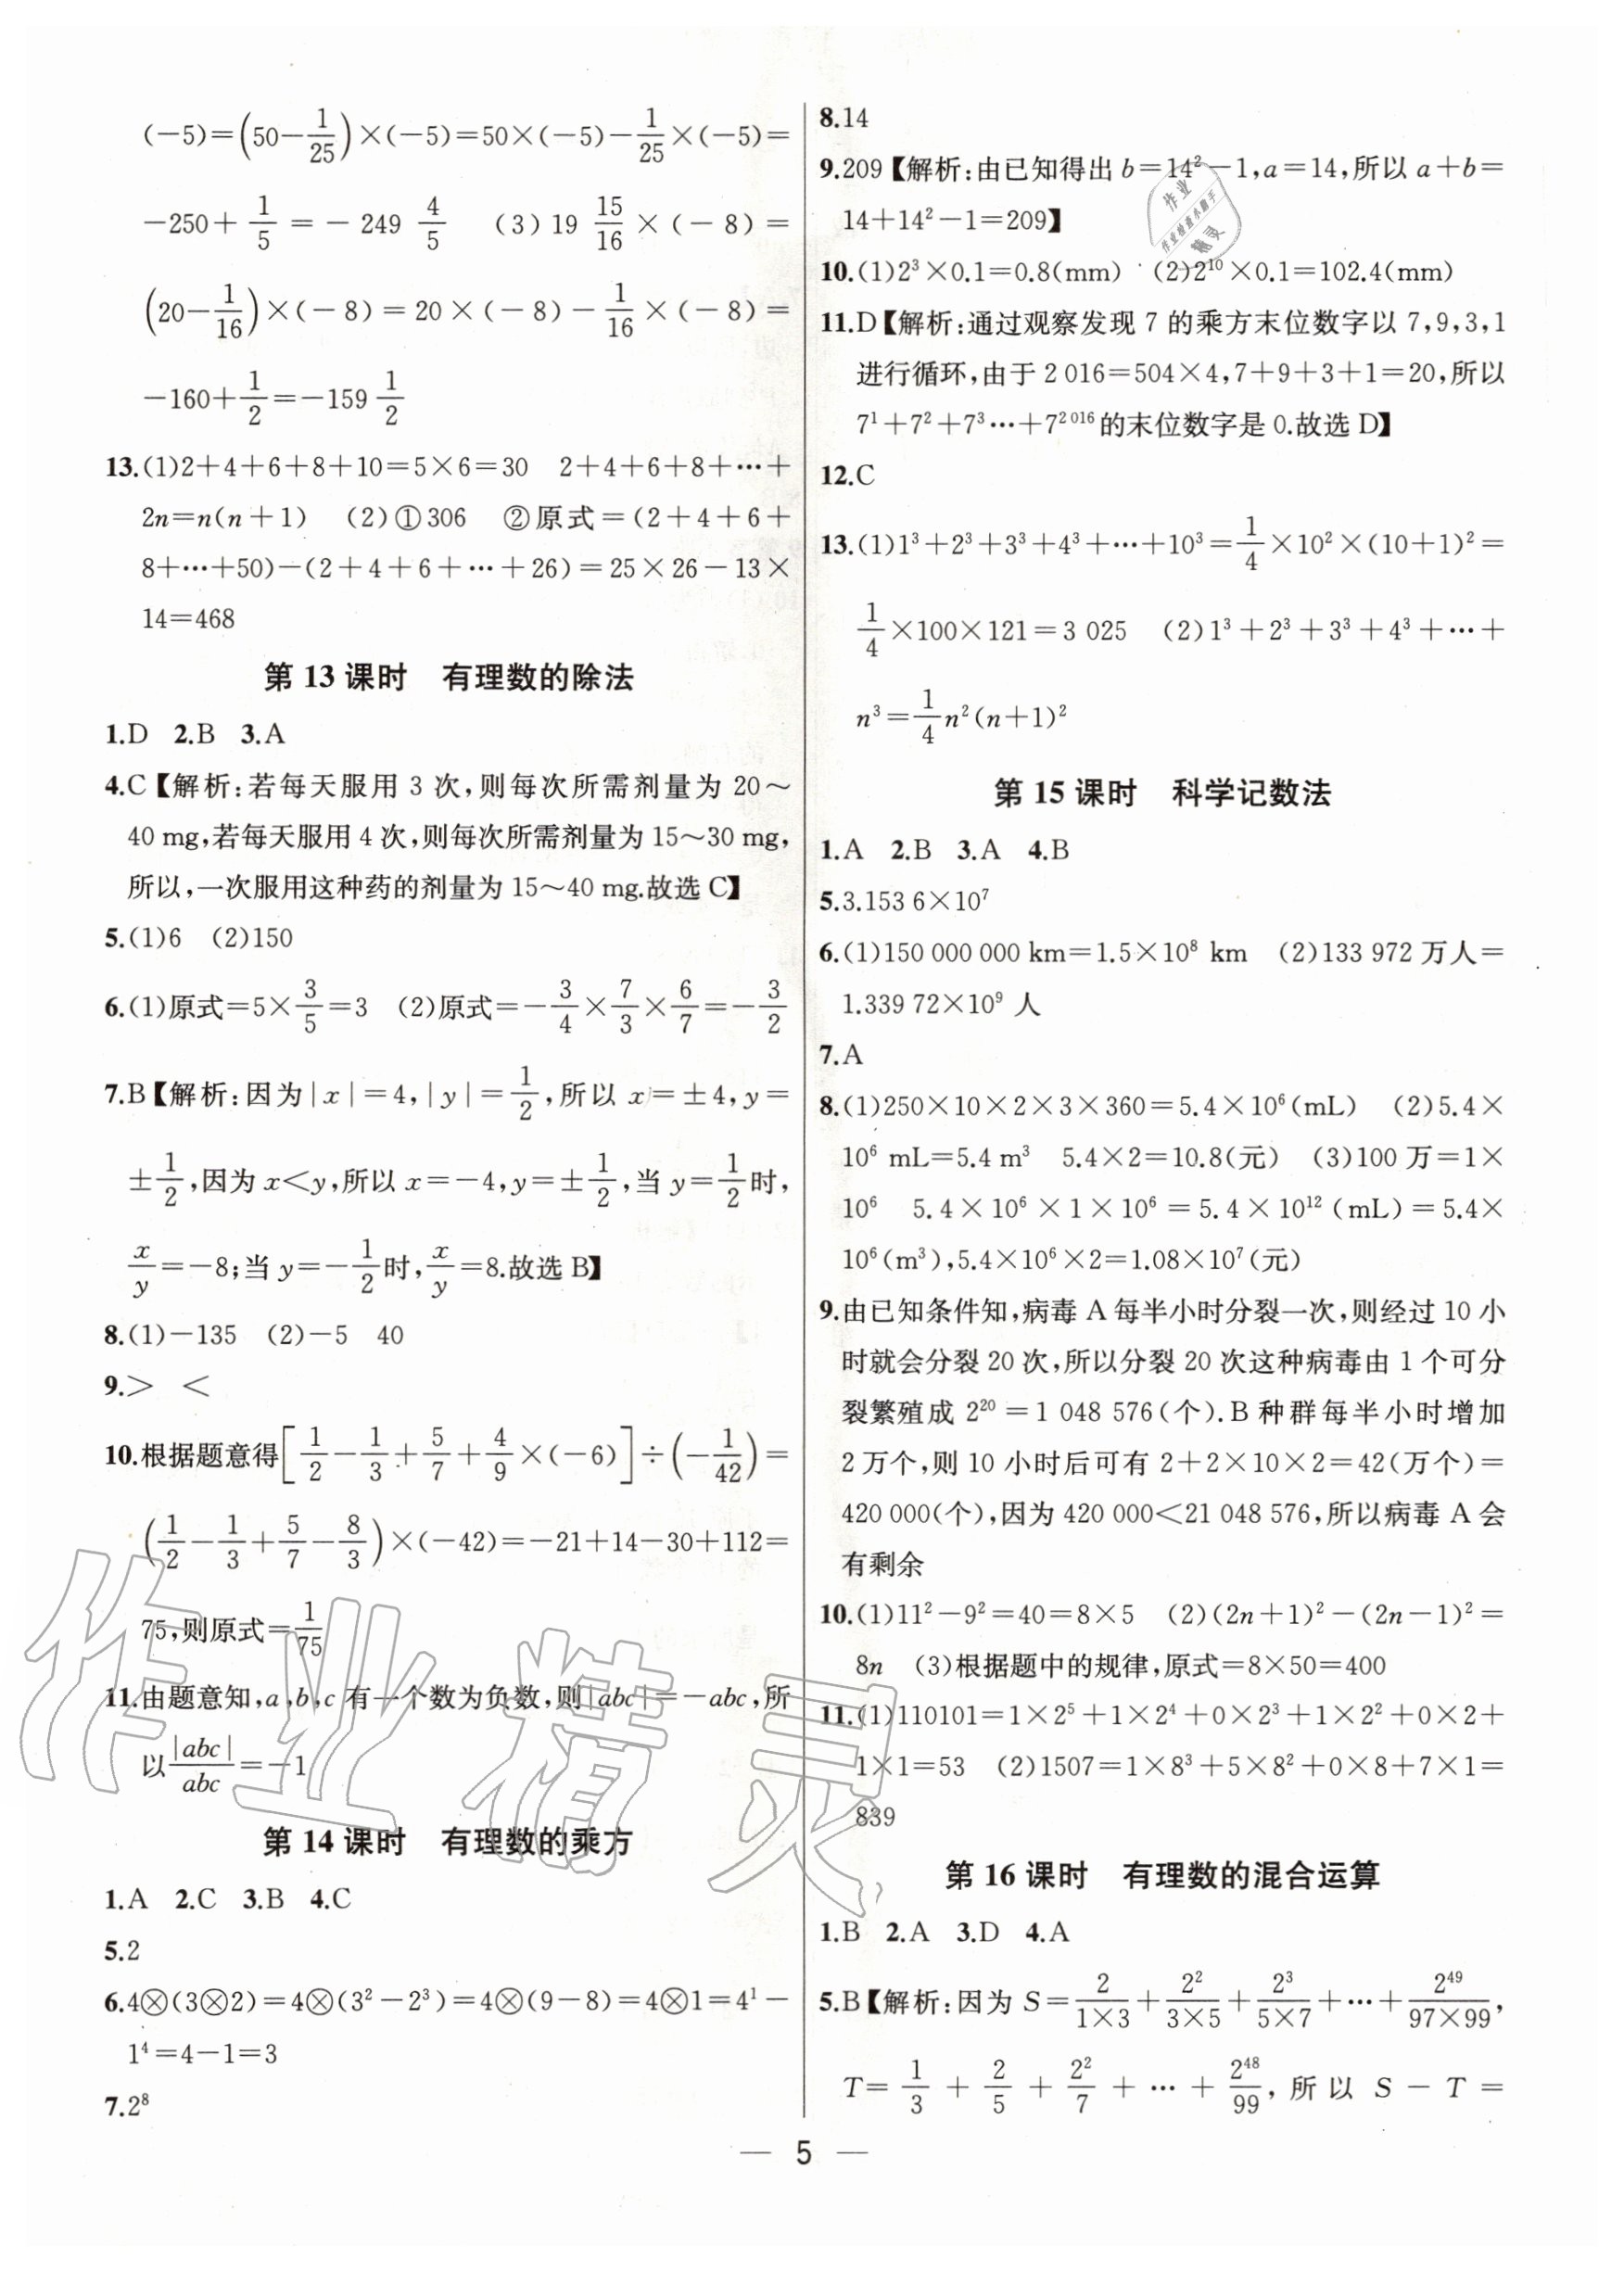 (−5)=(50−1/25)×(−5)=50×(−5)−1/25×(−5)=
−250+1/5=−249 4/5 (3)19 15/16×(−8)=
(20−1/16)×(−8)=20×(−8)−1/16×(−8)=
−160+1/2=−159 1/2
13.(1)2+4+6+8+10=5×6=30 2+4+6+8+⋯+
2n=n(n+1) (2)①306 ②原式=(2+4+6+
8+⋯+50)−(2+4+6+⋯+26)=25×26−13×
14=468
第 13 课时 有理数的除法
1.D 2.B 3.A
4.C【解析:若每天服用 3 次,则每次所需剂量为 20～
40 mg,若每天服用 4 次,则每次所需剂量为 15～30 mg,
所以,一次服用这种药的剂量为 15～40 mg.故选 C】
5.(1)6 (2)150
6.(1)原式=5×3/5=3 (2)原式=−3/4×7/3×6/7=−3/2
7.B【解析:因为|x|=4,|y|=1/2,所以 x=±4,y=
±1/2,因为 x<y,所以 x=−4,y=±1/2,当 y=1/2时,
x/y=−8;当 y=−1/2时,x/y=8.故选 B】
8.(1)−135 (2)−5 40
9.> <
10.根据题意得[1/2−1/3+5/7+4/9×(−6)]÷(−1/42)=
(1/2−1/3+5/7−8/3)×(−42)=−21+14−30+112=
75,则原式=1/75
11.由题意知,a,b,c 有一个数为负数,则|abc|=−abc,所
以|abc|/abc=−1
第 14 课时 有理数的乘方
1.A 2.C 3.B 4.C
5.2
6.4⊗(3⊗2)=4⊗(3²−2³)=4⊗(9−8)=4⊗1=4¹−
1⁴=4−1=3
7.2⁸
8.14
9.209【解析:由已知得出 b=14²−1,a=14,所以 a+b=
14+14²−1=209】
10.(1)2³×0.1=0.8(mm) (2)2¹⁰×0.1=102.4(mm)
11.D【解析:通过观察发现 7 的乘方末位数字以 7,9,3,1
进行循环,由于 2 016=504×4,7+9+3+1=20,所以
7¹+7²+7³⋯+7²⁰¹⁶的末位数字是 0.故选 D】
12.C
13.(1)1³+2³+3³+4³+⋯+10³=1/4×10²×(10+1)²=
1/4×100×121=3 025 (2)1³+2³+3³+4³+⋯+
n³=1/4n²(n+1)²
第 15 课时 科学记数法
1.A 2.B 3.A 4.B
5.3.153 6×10⁷
6.(1)150 000 000 km=1.5×10⁸ km (2)133 972 万人=
1.339 72×10⁹ 人
7.A
8.(1)250×10×2×3×360=5.4×10⁶(mL) (2)5.4×
10⁶ mL=5.4 m³ 5.4×2=10.8(元) (3)100 万=1×
10⁶ 5.4×10⁶×1×10⁶=5.4×10¹²(mL)=5.4×
10⁶(m³),5.4×10⁶×2=1.08×10⁷(元)
9.由已知条件知,病毒 A 每半小时分裂一次,则经过 10 小
时就会分裂 20 次,所以分裂 20 次这种病毒由 1 个可分
裂繁殖成 2²⁰=1 048 576(个).B 种群每半小时增加
2 万个,则 10 小时后可有 2+2×10×2=42(万个)=
420 000(个),因为 420 000<21 048 576,所以病毒 A 会
有剩余
10.(1)11²−9²=40=8×5 (2)(2n+1)²−(2n−1)²=
8n (3)根据题中的规律,原式=8×50=400
11.(1)110101=1×2⁵+1×2⁴+0×2³+1×2²+0×2+
1×1=53 (2)1507=1×8³+5×8²+0×8+7×1=
839
第 16 课时 有理数的混合运算
1.B 2.A 3.D 4.A
5.B【解析:因为 S=2/(1×3)+2²/(3×5)+2³/(5×7)+⋯+2⁴⁹/(97×99),
T=1/3+2/5+2²/7+⋯+2⁴⁸/99,所以 S−T=
— 5 —
作业精灵
作业
作业检查小助手
精灵